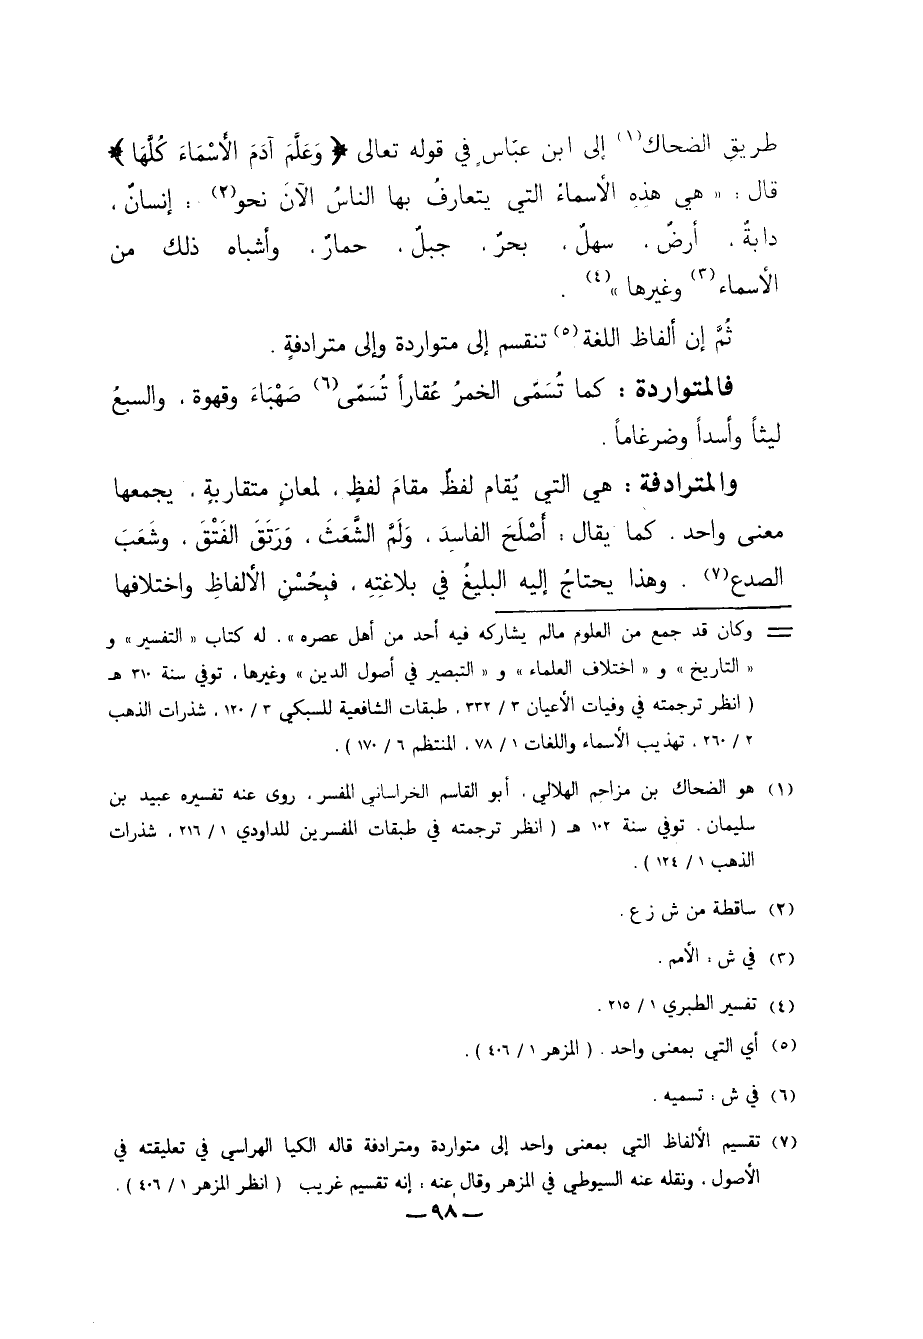 طريقِ الضحاك(١) إلى ابن عبّاسٍ في قوله تعالى ﴿ وَعَلَّمَ آدَمَ الأَسْمَاءَ كُلَّهَا ﴾
قال : « هي هذِهِ الأسماءُ التي يتعارفُ بها الناسُ الآنَ نحو(٢) : إنسانٌ ،
دابةٌ ، أرضٌ ، سهلٌ ، بحرٌ ، جبلٌ ، حمارٌ ، وأشباه ذلك من
الأسماء(٣) وغيرها »(٤) .
ثُمَّ إن ألفاظ اللغة(٥) تنقسم إلى متواردة وإلى مترادفةٍ .
فالمتواردة : كما تُسَمّى الخمرُ عُقاراً تُسَمّى(٦) صَهْبَاءَ وقهوة ، والسبعُ
ليثاً وأسداً وضرغاماً .
والمترادفة : هي التي يُقام لفظٌ مقامَ لفظٍ ، لمعانٍ متقاربةٍ ، يجمعها
معنى واحد . كما يقال : أَصْلَحَ الفاسدَ ، وَلَمَّ الشَّعَثَ ، وَرَتَقَ الفَتْقَ ، وشَعَبَ
الصدع(٧) . وهذا يحتاجُ إليه البليغُ في بلاغتِهِ ، فبِحُسْنِ الألفاظِ واختلافها
= وكان قد جمع من العلوم مالم يشاركه فيه أحد من أهل عصره » . له كتاب « التفسير » و
« التاريخ » و « اختلاف العلماء » و « التبصير في أصول الدين » وغيرها ، توفي سنة ٣١٠ هـ
( انظر ترجمته في وفيات الأعيان ٣ / ٣٣٢ ، طبقات الشافعية للسبكي ٣ / ١٢٠ ، شذرات الذهب
٢ / ٢٦٠ ، تهذيب الأسماء واللغات ١ / ٧٨ ، المنتظم ٦ / ١٧٠ ) .
(١) هو الضحاك بن مزاحم الهلالي ، أبو القاسم الخراساني المفسر ، روى عنه تفسيره عبيد بن
سليمان . توفي سنة ١٠٢ هـ ( انظر ترجمته في طبقات المفسرين للداودي ١ / ٢١٦ ، شذرات
الذهب ١ / ١٢٤ ) .
(٢) ساقطة من ش ز ع .
(٣) في ش : الأمم .
(٤) تفسير الطبري ١ / ٢١٥ .
(٥) أي التي بمعنى واحد . ( المزهر ١ / ٤٠٦ ) .
(٦) في ش : تسميه .
(٧) تقسيم الألفاظ التي بمعنى واحد إلى متواردة ومترادفة قاله الكيا الهراسي في تعليقته في
الأصول ، ونقله عنه السيوطي في المزهر وقال عنه : إنه تقسيم غريب ( انظر المزهر ١ / ٤٠٦ ) .
— ٩٨ —